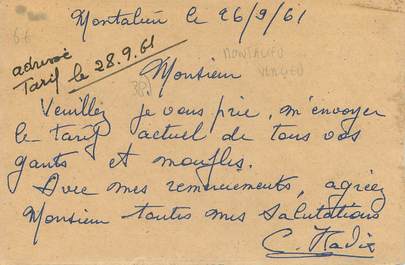 Montalieu le 26/9/61
66
adressé
Tarif le 28.9.61
MONTALIEU
VERCIEU
Monsieur
38
Veuillez je vous prie, m'envoyer
le tarif actuel de tous vos
gants et moufles.
Avec mes remerciements, agréez
Monsieur toutes mes Salutations
C.